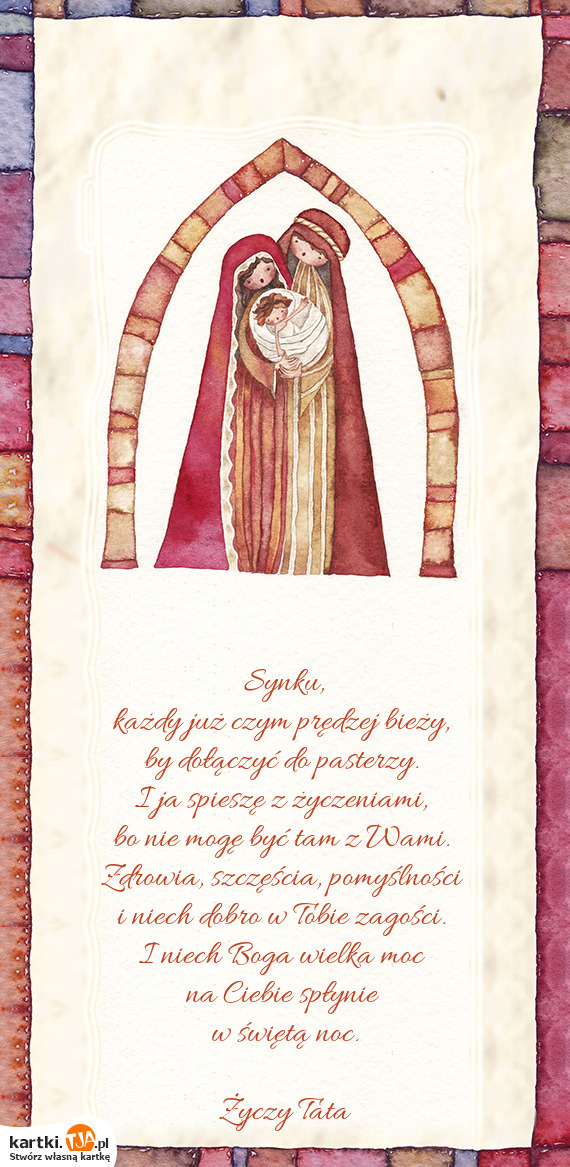 Synku,
każdy już czym prędzej bieży,
by dołączyć do pasterzy.
I ja spieszę z życzeniami,
bo nie mogę być tam z Wami.
Zdrowia, szczęścia, pomyślności
i niech dobro w Tobie zagości.
I niech Boga wielka moc
na Ciebie spłynie
w świętą noc.
Życzy Tata
kartki.TJA.pl
Stwórz własną kartkę